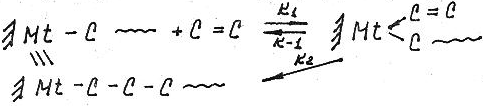 Mt - C + C = C K1 K-1 Mt C = C C
K2
Mt - C - C - C